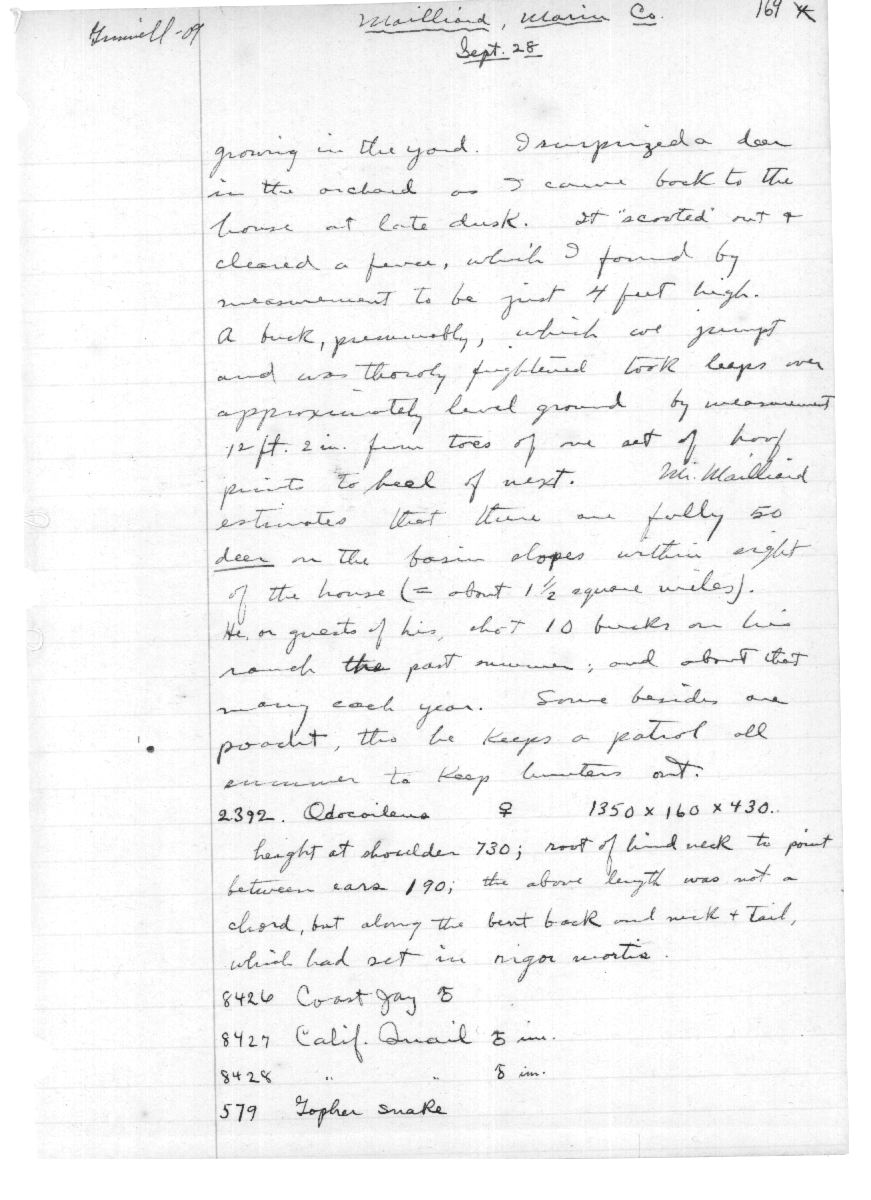 Grinnell-09
Mailliard, Marin Co.
169 *
Sept. 28
growing in the yard. I surprized a deer
in the orchard as I came back to the
house at late dusk. It "scooted" out &
cleared a fence, which I found by
measurement to be just 4 feet high.
A buck, presumably, which we jumpt
and was thoroly frightened took leaps over
approximately level ground by measurement
12 ft. 2 in. from toes of one set of hoof
prints to heel of next. Mr. Mailliard
estimates that there are fully 50
deer on the basin slopes within sight
of the house (= about 1 1/2 square miles).
He, or guests of his, shot 10 bucks on his
ranch the past summer; and about that
many each year. Some besides are
poacht, tho he keeps a patrol all
summer to keep hunters out.
2392. Odocoileus ♀ 1350 x 160 x 430.
height at shoulder 730; root of hind neck to point
between ears 190; the above length was not a
chord, but along the bent back and neck & tail,
which had set in rigor mortis.
8426 Coast Jay ♂
8427 Calif. Quail ♂ im.
8428 " " ♂ im.
579 Gopher snake